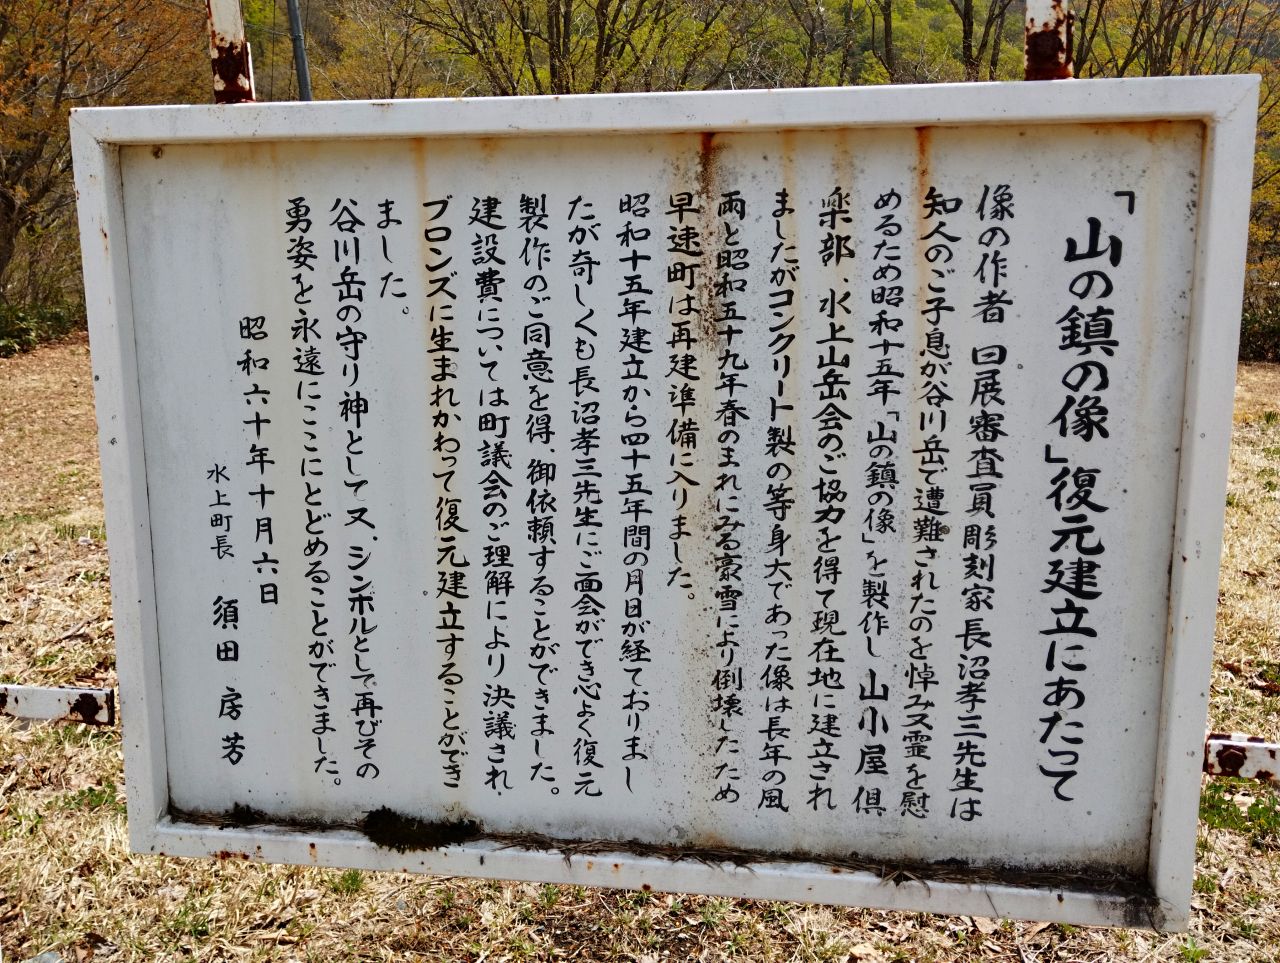 「山の鎮の像」復元建立にあたって
像の作者 日展審査員彫刻家長沼孝三先生は
知人のご子息が谷川岳で遭難されたのを悼み又霊を慰
めるため昭和十五年「山の鎮の像」を製作し山小屋倶
楽部、水上山岳会のご協力を得て現在地に建立され
ましたがコンクリート製の等身大であった像は長年の風
雨と昭和五十九年春のまれにみる豪雪により倒壊したため
早速町は再建準備に入りました。
昭和十五年建立から四十五年間の月日が経ておりまし
たが奇しくも長沼孝三先生にご面会ができ心よく復元
製作のご同意を得、御依頼することができました。
建設費については町議会のご理解により決議され、
ブロンズに生まれかわって復元建立することができ
ました。
谷川岳の守り神として又、シンボルとして再びその
勇姿を永遠にここにとどめることができました。
昭和六十年十月六日
水上町長 須田房芳